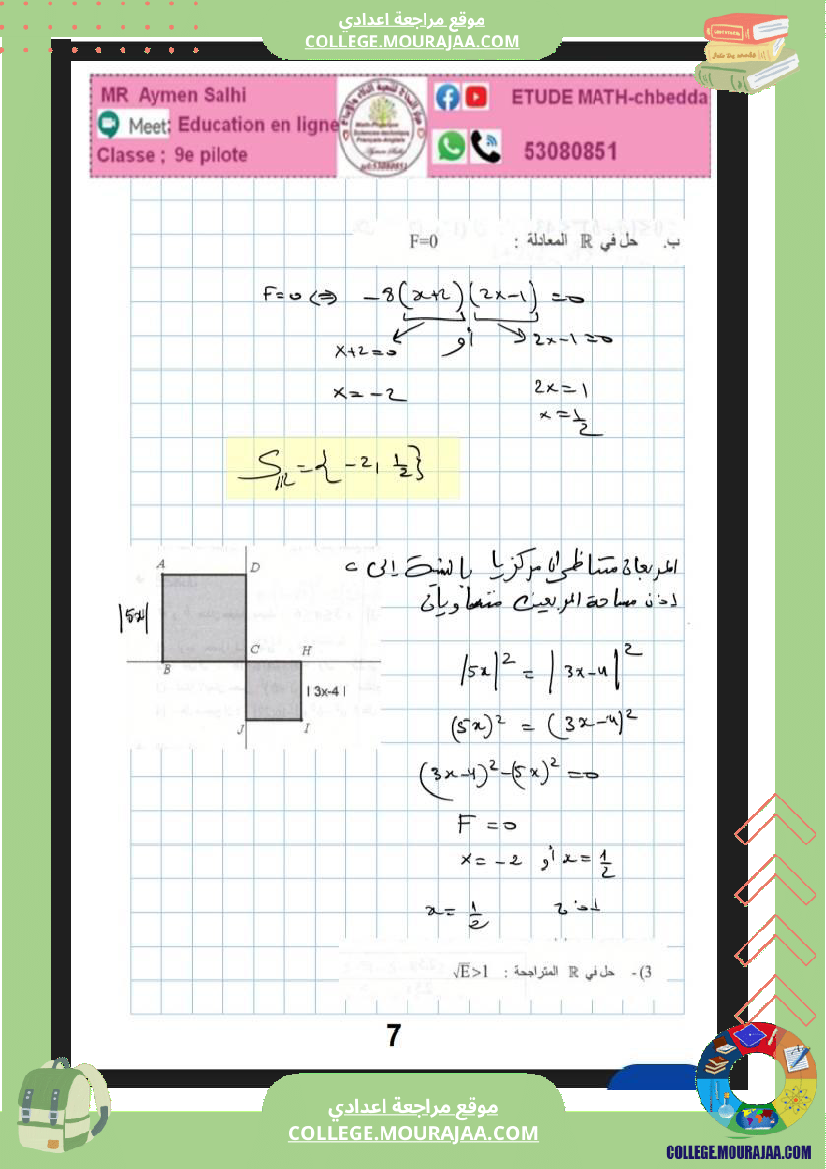 موقع مراجعة اعدادي
COLLEGE.MOURAJAA.COM
MR Aymen Salhi
Meet; Education en ligne
Classe ; 9e pilote
ETUDE MATH-chbedda
53080851
ب. حل في ℝ المعادلة : F=0
F=0 ⇔ -8(x+2)(2x-1) =0
x+2=0 أو 2x-1=0
x=-2 2x=1
x=1/2
Sℝ={-2, 1/2}
المربعان متناظران مركزيا بالنسبة إلى C
اذن مساحة المربعين متساويان
A D
|5x|
B C H
| 3x-4 |
J I
|5x|² = |3x-4|²
(5x)² = (3x-4)²
(3x-4)²-(5x)²=0
F =0
x=-2 أو x=1/2
اذن x=1/2
3)- حل في ℝ المتراجحة : √E>1
7
موقع مراجعة اعدادي
COLLEGE.MOURAJAA.COM
COLLEGE.MOURAJAA.COM